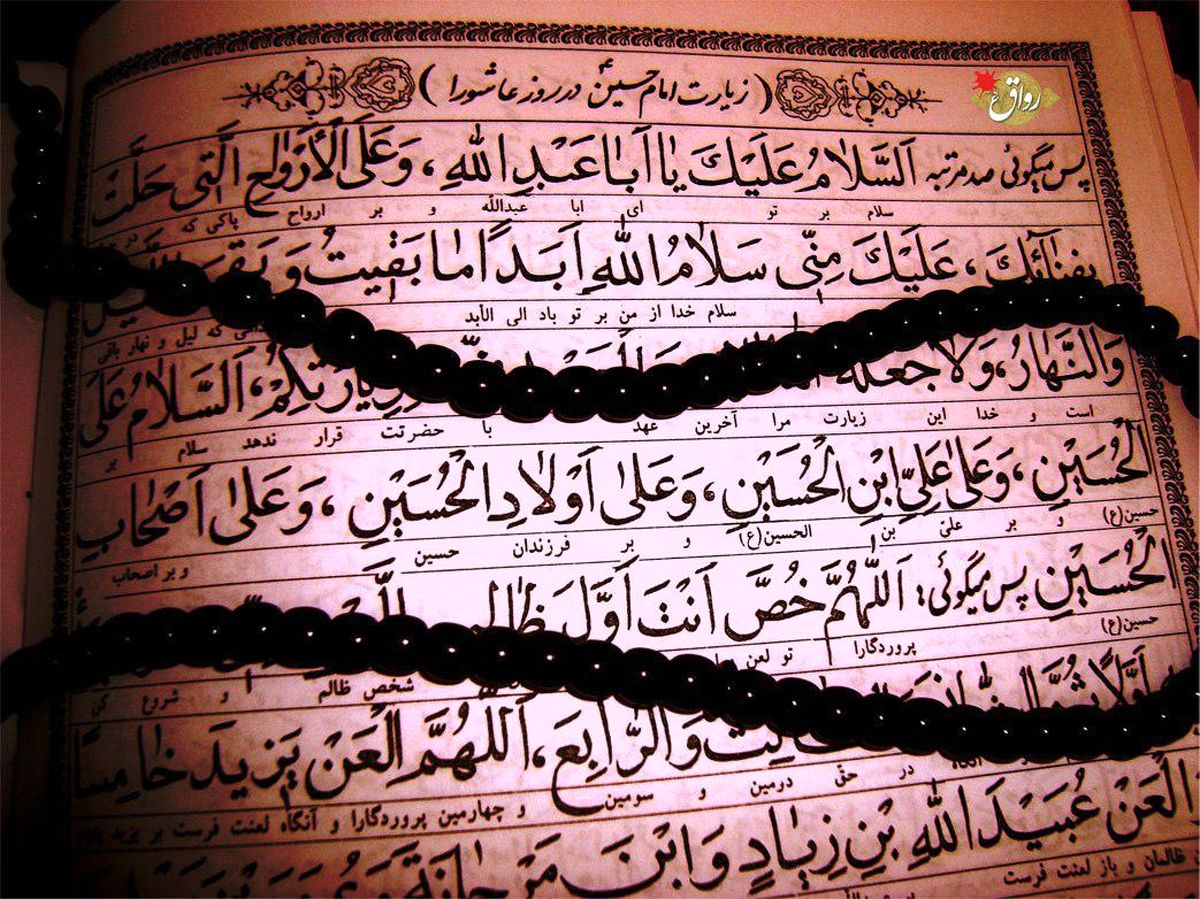 ( زیارت امام حسینؑ در روز عاشورا )
رواق
پس میگوئی صد مرتبه اَلسَّلامُ عَلَیْكَ یا اَبا عَبْدِ اللهِ، وَعَلَى الْأَرْواحِ الَّتی حَلَّتْ
سلام بر تو ای ابا عبدالله و بر ارواح پاکی که در
بِفِنآئِكَ، عَلَیْكَ مِنّی سَلامُ اللهِ اَبَدًا ما بَقیتُ وَ بَقِیَ
سلام خدا از من بر تو باد الی الأبد که لیل و نهار باقی
وَالنَّهارُ، وَلا جَعَلَهُ زِیارَتِکُمْ، اَلسَّلامُ عَلَى
است و خدا این زیارت مرا آخرین عهد با حضرتت قرار ندهد سلام بر
الْحُسَیْنِ، وَعَلى عَلِیِّ ابْنِ الْحُسَیْنِ، وَعَلى اَوْلادِ الْحُسَیْنِ، وَعَلى اَصْحابِ
حسین(ع) و بر علیّ بن الحسین(ع) و بر فرزندان حسین و بر اصحاب
الْحُسَیْنِ پس میگوئی: اَللّهُمَّ خُصَّ اَنْتَ اَوَّلَ ظالِمٍ
حسین(ع) پروردگارا تو لعن شخص ظالم و شروع کن
اَوَّلاً ثُمَّ
در حقّ دومین و سومین
وَالرّابِعَ، اَللّهُمَّ الْعَنْ یَزیدَ خامِسًا
و چهارمین پروردگارا و آنگاه لعنت فرست بر یزید
الْعَنْ عُبَیْدَ اللهِ بْنِ زِیادٍ وَابْنَ مَرْجانَةَ
ظالمان و باز لعنت فرست